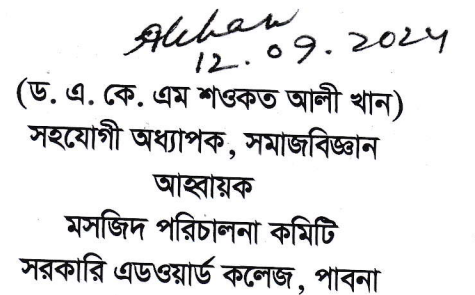 12.09.2024
(ড. এ. কে. এম শওকত আলী খান)
সহযোগী অধ্যাপক, সমাজবিজ্ঞান
আহ্বায়ক
মসজিদ পরিচালনা কমিটি
সরকারি এডওয়ার্ড কলেজ, পাবনা